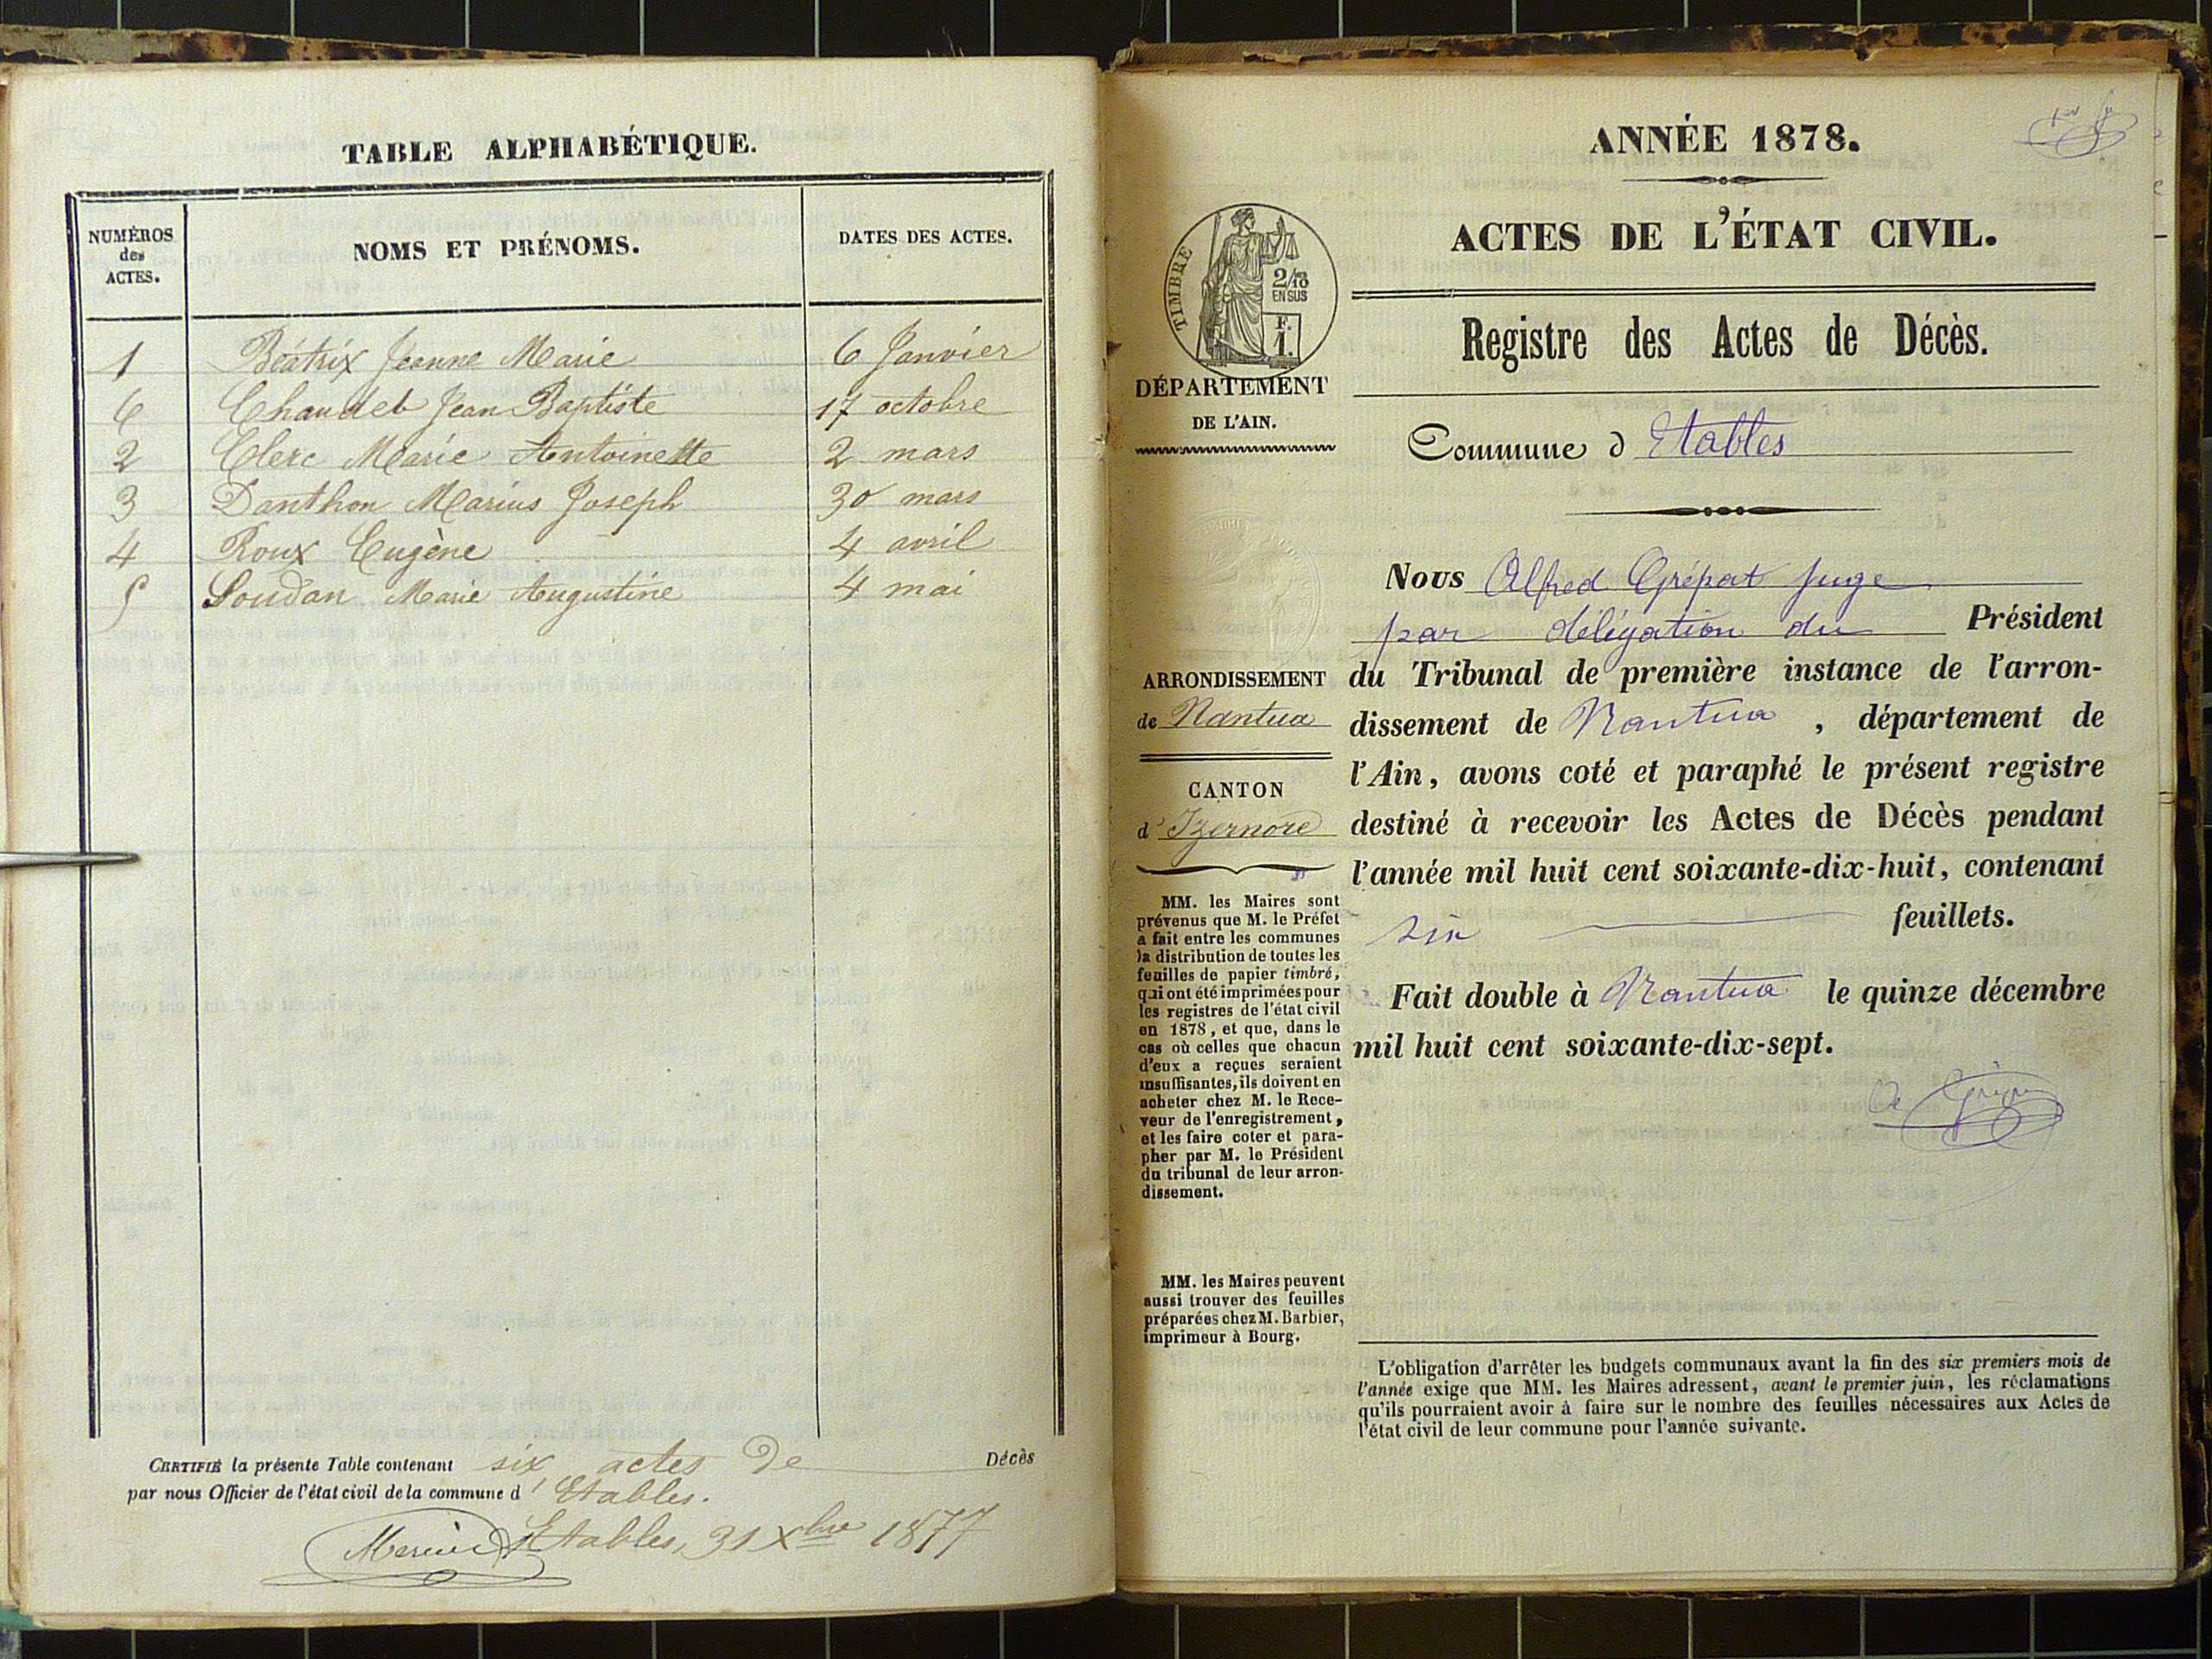 TABLE ALPHABÉTIQUE.
NUMÉROS
des
ACTES.
NOMS ET PRÉNOMS.
DATES DES ACTES.
1 Béatrix Jeanne Marie 6 Janvier
6 Chaudet Jean Baptiste 17 octobre
2 Clerc Marie Antoinette 2 mars
3 Danthon Marius Joseph 30 mars
4 Roux Eugène 4 avril
5 Soudan Marie Augustine 4 mai
CERTIFIÉ la présente Table contenant six actes de Décès
par nous Officier de l'état civil de la commune d'Etables.
Etables, 31 Xbre 1877
ANNÉE 1878.
ACTES DE L'ÉTAT CIVIL.
TIMBRE
2/10
EN SUS
F.
1.
Registre des Actes de Décès.
DÉPARTEMENT
DE L'AIN.
Commune d Etables
Nous Alfred Grépat juge
par délégation du Président
du Tribunal de première instance de l'arron-
dissement de Nantua, département de
l'Ain, avons coté et paraphé le présent registre
destiné à recevoir les Actes de Décès pendant
l'année mil huit cent soixante-dix-huit, contenant
six feuillets.
Fait double à Nantua le quinze décembre
mil huit cent soixante-dix-sept.
ARRONDISSEMENT
de Nantua
CANTON
d'Izernore
MM. les Maires sont
prévenus que M. le Préfet
a fait entre les communes
la distribution de toutes les
feuilles de papier timbré,
qui ont été imprimées pour
les registres de l'état civil
en 1878, et que, dans le
cas où celles que chacun
d'eux a reçues seraient
insuffisantes, ils doivent en
acheter chez M. le Rece-
veur de l'enregistrement,
et les faire coter et para-
pher par M. le Président
du tribunal de leur arron-
dissement.
MM. les Maires peuvent
aussi trouver des feuilles
préparées chez M. Barbier,
imprimeur à Bourg.
L'obligation d'arrêter les budgets communaux avant la fin des six premiers mois de
l'année exige que MM. les Maires adressent, avant le premier juin, les réclamations
qu'ils pourraient avoir à faire sur le nombre des feuilles nécessaires aux Actes de
l'état civil de leur commune pour l'année suivante.